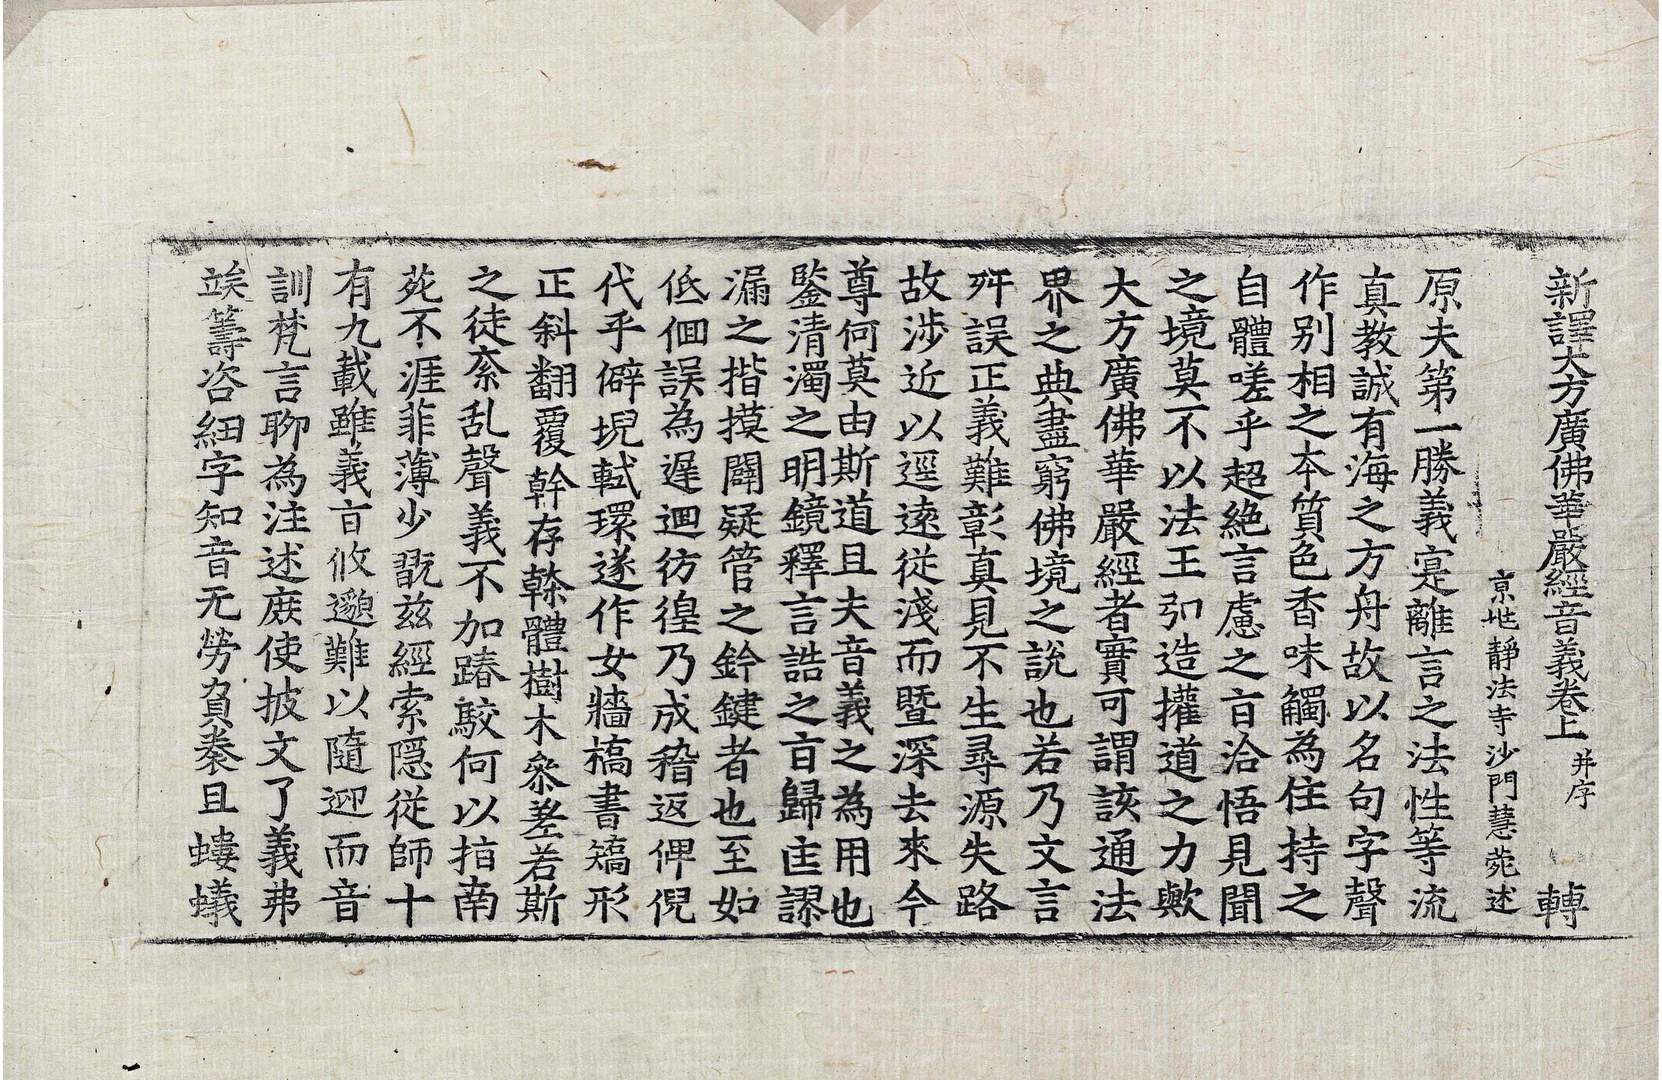 新譯大方廣佛華嚴經音義卷上 并序 轉
京地靜法寺沙門慧苑述
原夫第一勝義寔離言之法性等流
真教誠有海之方舟故以名句字聲
作別相之本質色香味觸為住持之
自體嗟乎超絶言慮之旨洽悟見聞
之境莫不以法王弘造攉道之力歟
大方廣佛華嚴經者實可謂該通法
界之典盡窮佛境之說也若乃文言
舛誤正義難彰真見不生尋源失路
故涉近以逕遠從淺而曁深去來今
尊何莫由斯道且夫音義之為用也
鑒清濁之明鏡釋言誥之旨歸匡謬
漏之揩摸闢疑管之鈐鍵者也至如
低佪誤為遲迴彷徨乃成稽返俾倪
代乎僻堄軾環遂作女牆槁書矯形
正斜翻覆幹存榦體樹木叅差若斯
之徒紊乱聲義不加踳駮何以指南
苑不涯菲薄少翫兹經索隱從師十
有九載雖義旨攸邈難以隨迎而音
訓梵言聊為注述庶使披文了義弗
竢籌咨紐字知音无勞負袠且螻蟻